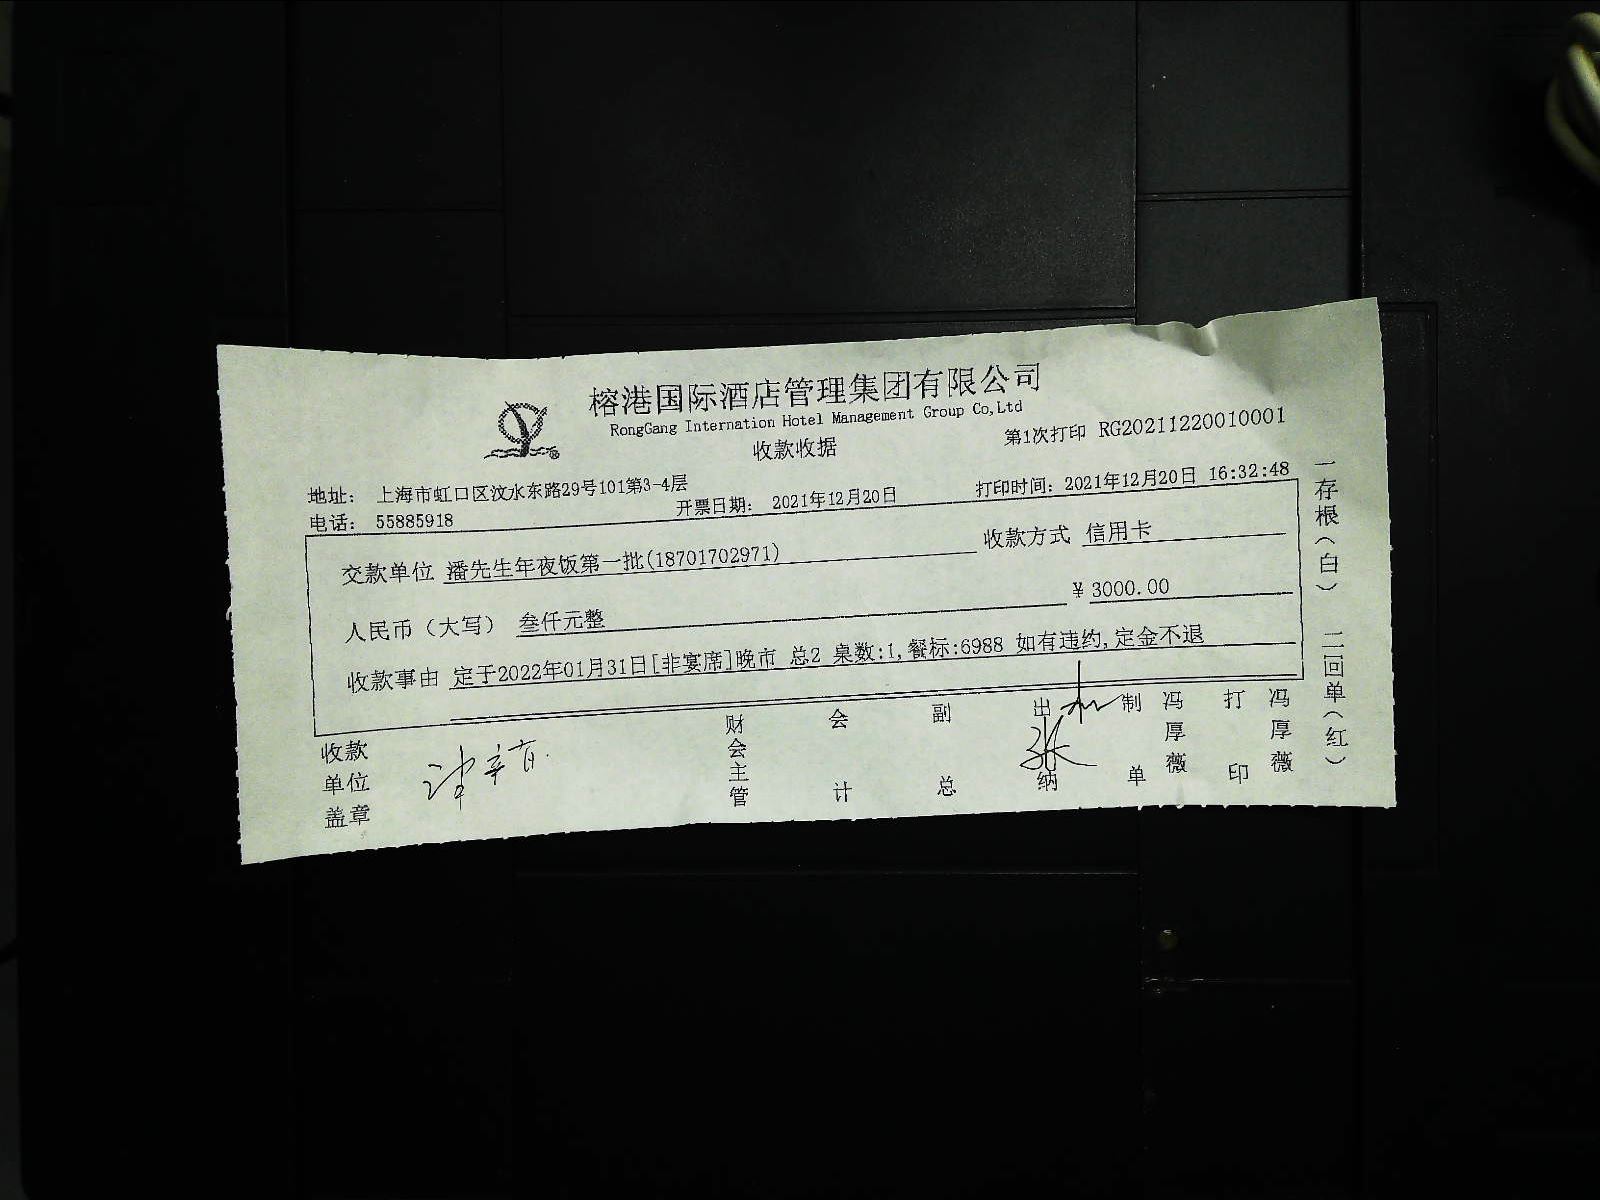 榕港国际酒店管理集团有限公司
RongGang Internation Hotel Management Group Co,Ltd
收款收据
第1次打印 RG20211220010001
地址: 上海市虹口区汶水东路29号101第3-4层
电话: 55885918
开票日期: 2021年12月20日
打印时间: 2021年12月20日 16:32:48
交款单位 潘先生年夜饭第一批(18701702971)
收款方式 信用卡
人民币(大写) 叁仟元整
¥ 3000.00
收款事由 定于2022年01月31日[非宴席]晚市 总2 桌数:1,餐标:6988 如有违约,定金不退
收款单位盖章
财会主管
会计
副总
出纳
张
制单
冯厚薇
打印
冯厚薇
一存根(白)
二回单(红)